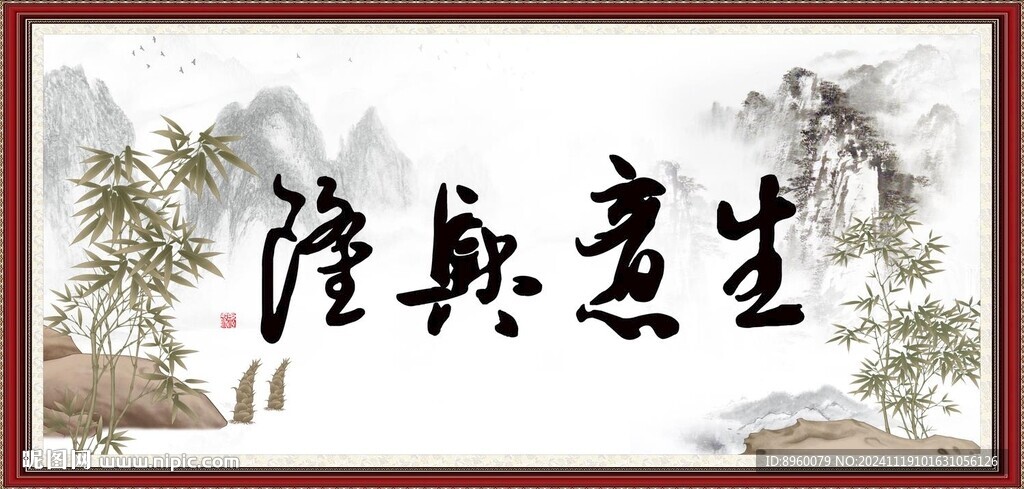 生意興隆
昵图网 www.nipic.com
ID:8960079 NO:20241119101631056126